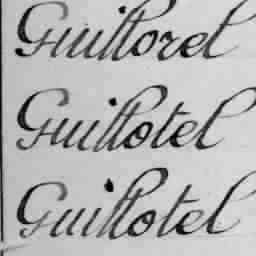 Guillorel
Guillotel
Guillotel